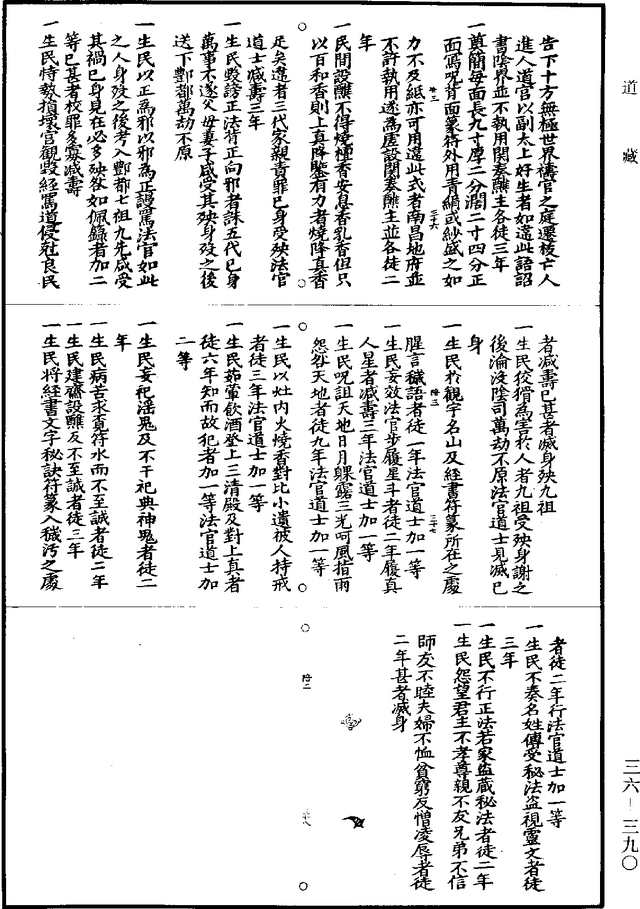 道藏
告下十方無極世界禱官之庭遷拔亡人
進人道官以副太上好生者如違此語詔
書陰界並不執用関奏醮主各徒三年
一奠簡每面長九寸厚二分濶二寸四分正
面寫呪背面篆符外用青絹或紗盛之如
力不及紙亦可用違此式者南昌地府並
不許執用遂為虛設関奏醮主並各徒二
年
一民間設醮不得燒檀香安息香乳香但只
以百和香則上真降鑒有力者燒降真香
足矣違者三代家親責罪已身受殃法官
道士減壽三年
一生民毀謗正法符正向邪者誅五代已身
萬事不遂父母妻子咸受其殃身歿之後
送下酆都萬劫不原
一生民以正為邪以邪為正謾罵法官如此
之人身歿之後考入酆都七祖九先咸受
其禍已身見在必多殃咎如佩籙者加二
等已甚者校罪多寡減壽
一生民恃勢損壞宫觀毀經罵道侵尅良民
者減壽已甚者滅身殃九祖
一生民狡猾為害於人者九祖受殃身謝之
後淪没陰司萬劫不原法官道士見滅已
身
一生民於觀宇名山及經書符篆所在之處
腥言穢語者徒一年法官道士加一等
一生民妄效法官步履星斗者徒二年履真
人星者減壽三年法官道士加一等
一生民呪詛天地日月躶露三光呵風指雨
怨咎天地者徒九年法官道士加一等
一生民以灶内火燒香對北小遺被人持戒
者徒三年法官道士加一等
一生民茹葷飲酒登上三清殿及對上真者
徒六年知而故犯者加一等法官道士加
二等
一生民妄祀滛鬼及不干祀典神鬼者徒二
年
一生民病苦求覓符水而不至誠者徒二年
一生民建齋設醮及不至誠者徒三年
一生民將經書文字秘訣符篆入穢污之處
者徒二年行法官道士加一等
一生民不奏名姓傳受秘法盜視靈文者徒
三年
一生民不行正法若家盜藏秘法者徒二年
一生民怨望君主不孝尊親不友兄弟不信
師友不睦夫婦不恤貧窮反憎凌辱者徒
二年甚者滅身
三六－三九〇